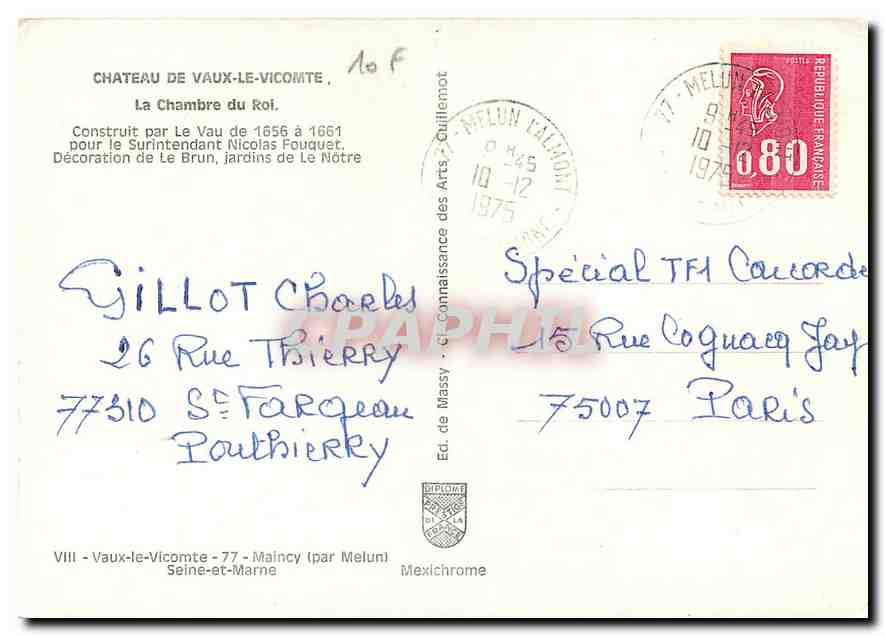 CHATEAU DE VAUX-LE-VICOMTE.
La Chambre du Roi.
Construit par Le Vau de 1656 à 1661
pour le Surintendant Nicolas Fouquet.
Décoration de Le Brun, jardins de Le Nôtre
10 F
GILLOT Charles
26 Rue Thierry
77310 St Fargeau
Ponthierry
VIII - Vaux-le-Vicomte - 77 - Maincy (par Melun)
Seine-et-Marne
Ed. de Massy - Cl Connaissance des Arts, Guillemot
DIPLOME
PRESTIGE
DE LA
FRANCE
Mexichrome
77 - MELUN L'ALMONT
9 H 45
10 - 12
1975
77 - MELUN
9 H 45
10 - 12
1975
POSTES
REPUBLIQUE FRANÇAISE
0,80
Spécial TF1 Concorde
15 Rue Cognacq Jay
75007 PARIS
CPAPHIL